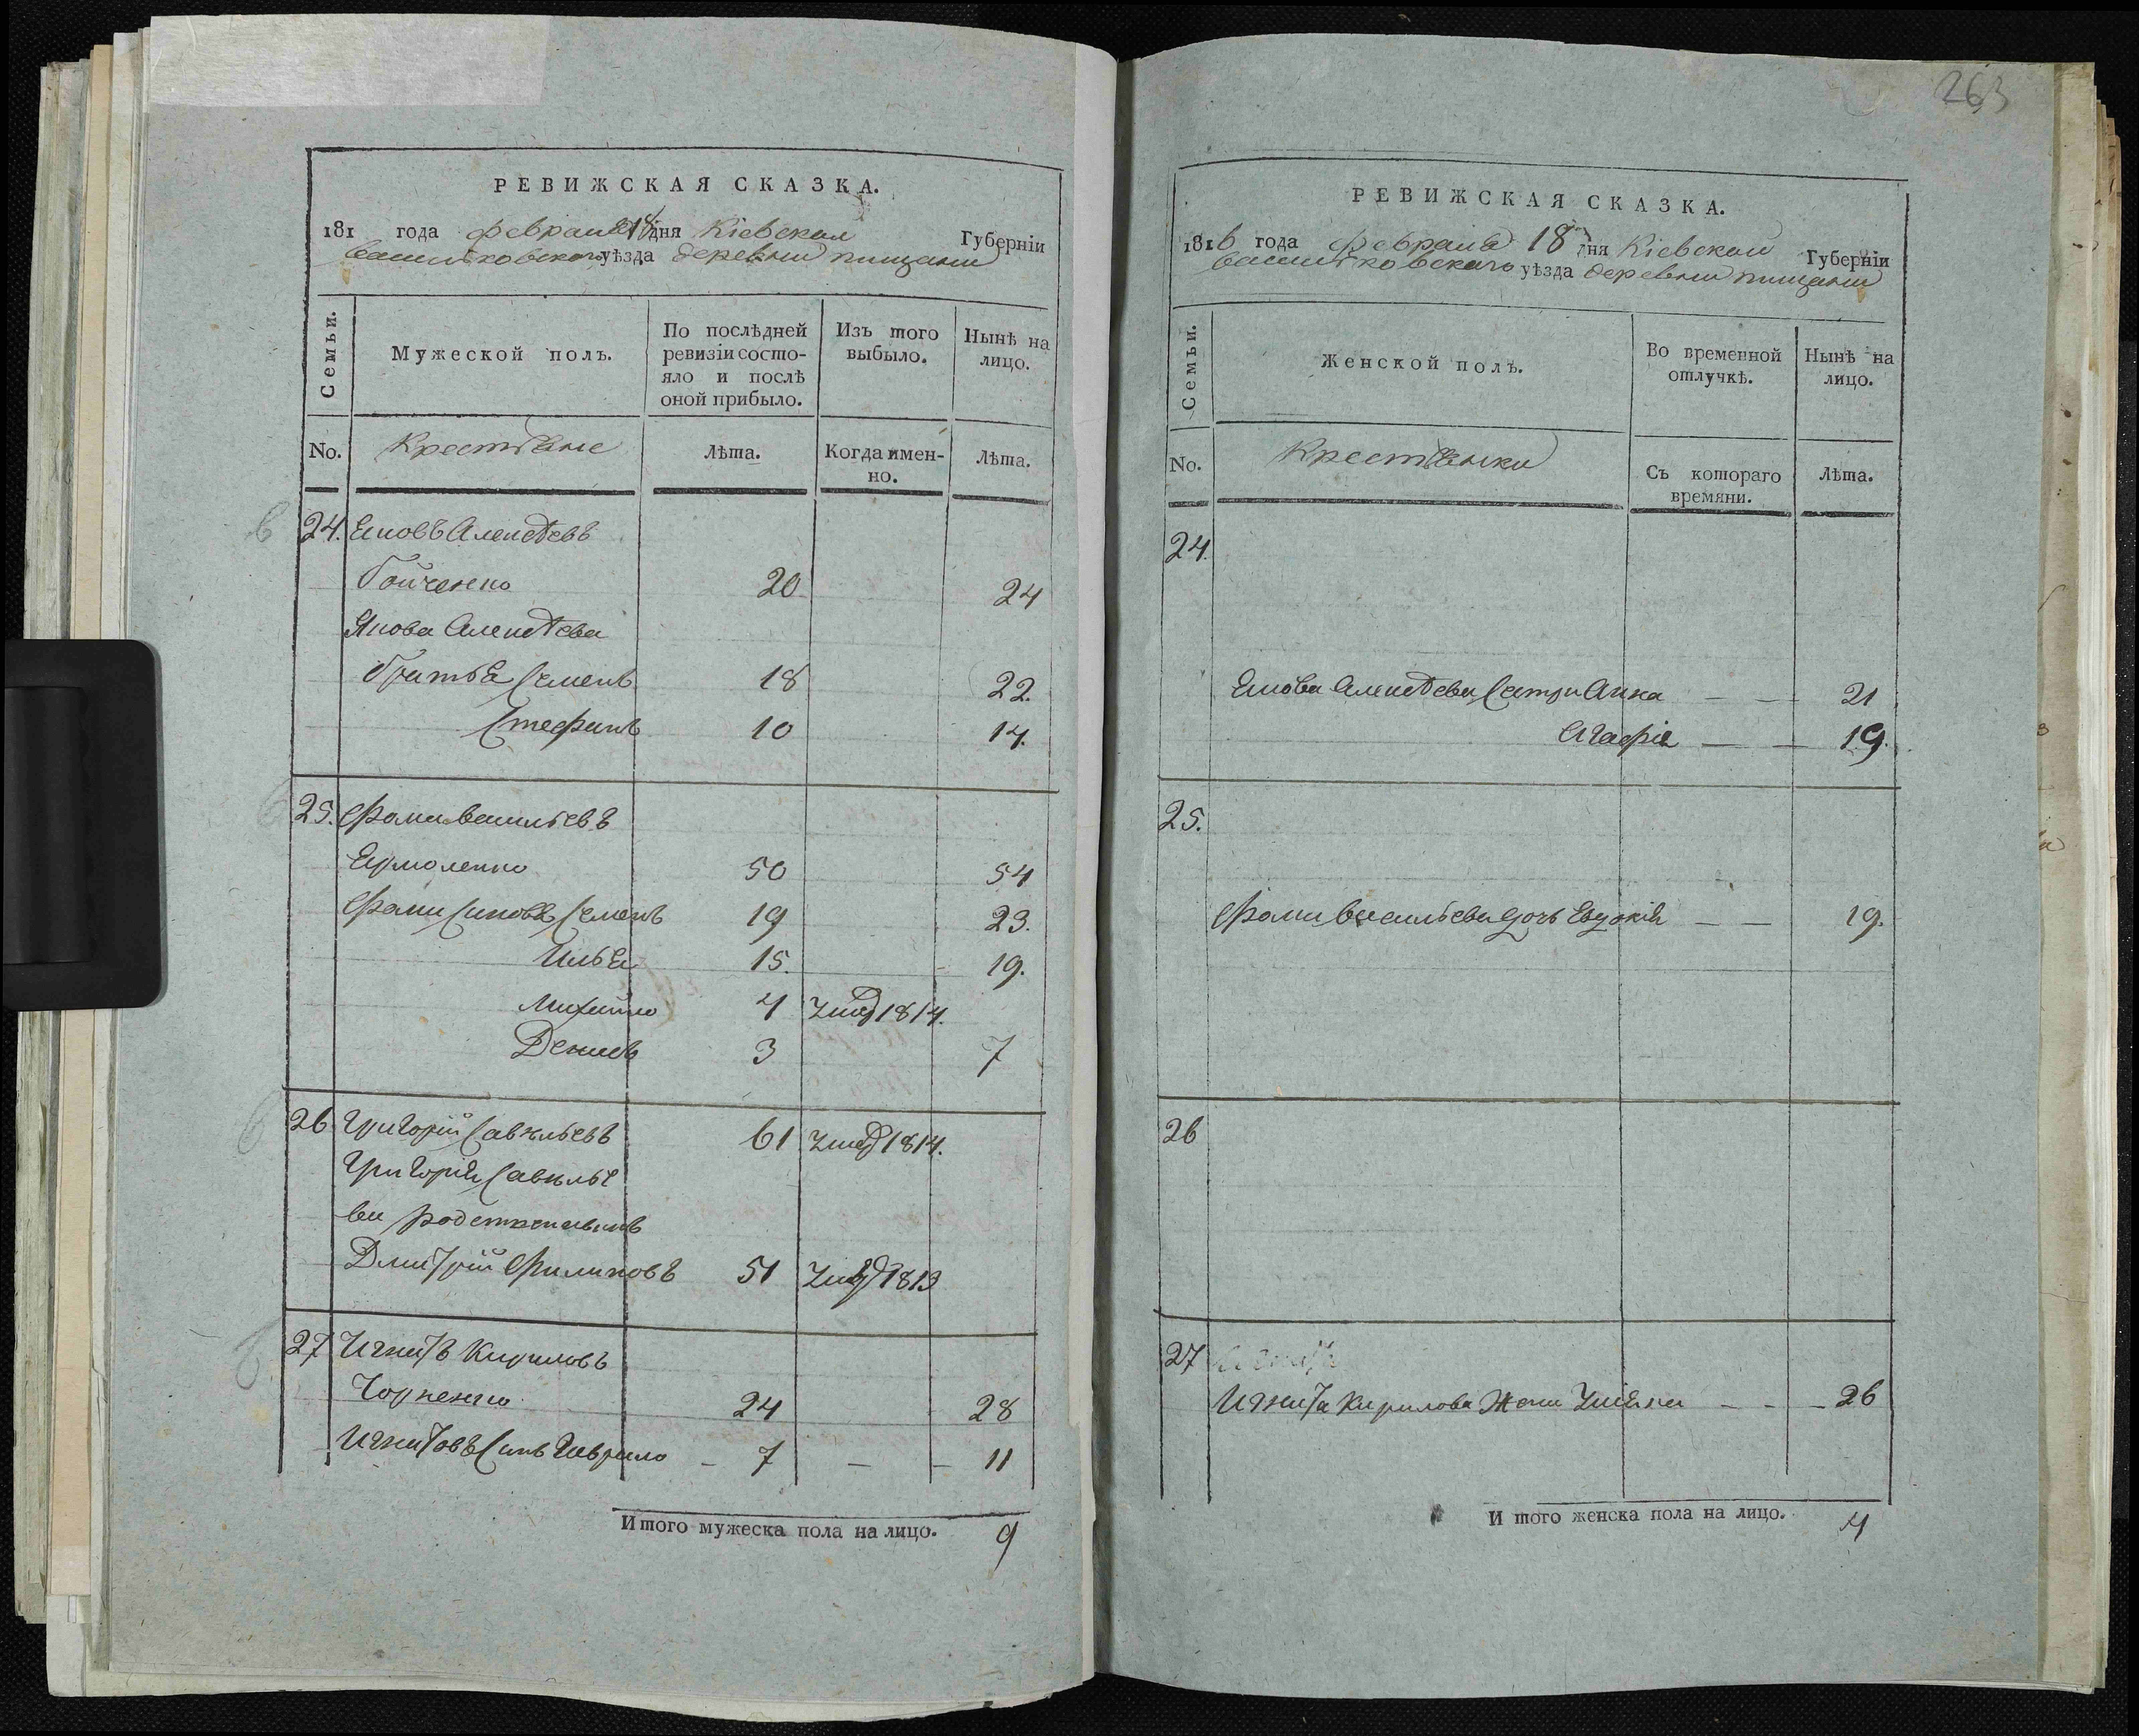 263
РЕВИЖСКАЯ СКАЗКА.
181 года февраля 18 дня Кіевская Губерніи
васильковскаго уѣзда деревни пищани
Семьи.
Мужеской полъ.
По послѣдней ревизіи состояло и послѣ оной прибыло.
Изъ того выбыло.
Нынѣ на лицо.
No.
Крестьяне
Лѣта.
Когда имен-
но.
Лѣта.
24. Яковъ Алексѣевъ
Бойченко 20 24
Якова Алексѣева
братья Семенъ 18 22.
Стефанъ 10 14.
25. Фома васильевъ
Ермоленко 50 54
Фоми Синовья Семенъ 19 23.
Илья 15. 19.
Михайло 4 1814.
Денисъ 3 7
26 Григорій Савельевъ 61 1814.
Григорія Савелье
ва родственникъ
Дмитрій Филиповъ 51 1813
27 Игнатъ Кириловъ
24 28
Игнатовъ Синъ Гаврило – 7 – – 11
Итого мужеска пола на лицо. 9
РЕВИЖСКАЯ СКАЗКА.
1816 года февраля 18 дня Кіевской Губерніи
васильковскаго уѣзда деревни пищани
Семьи.
Женской полъ.
Во временной отлучкѣ.
Нынѣ на лицо.
No.
Крестьянки
Съ котораго времяни.
Лѣта.
24.
Якова Алексѣева Сестри Анна — — 21
Агафія — — 19.
25.
Фоми васильева дочь Евдокія — — 19.
26
27
Игната Кирилова Жена Уліяна – – – 26
И того женска пола на лицо. 4